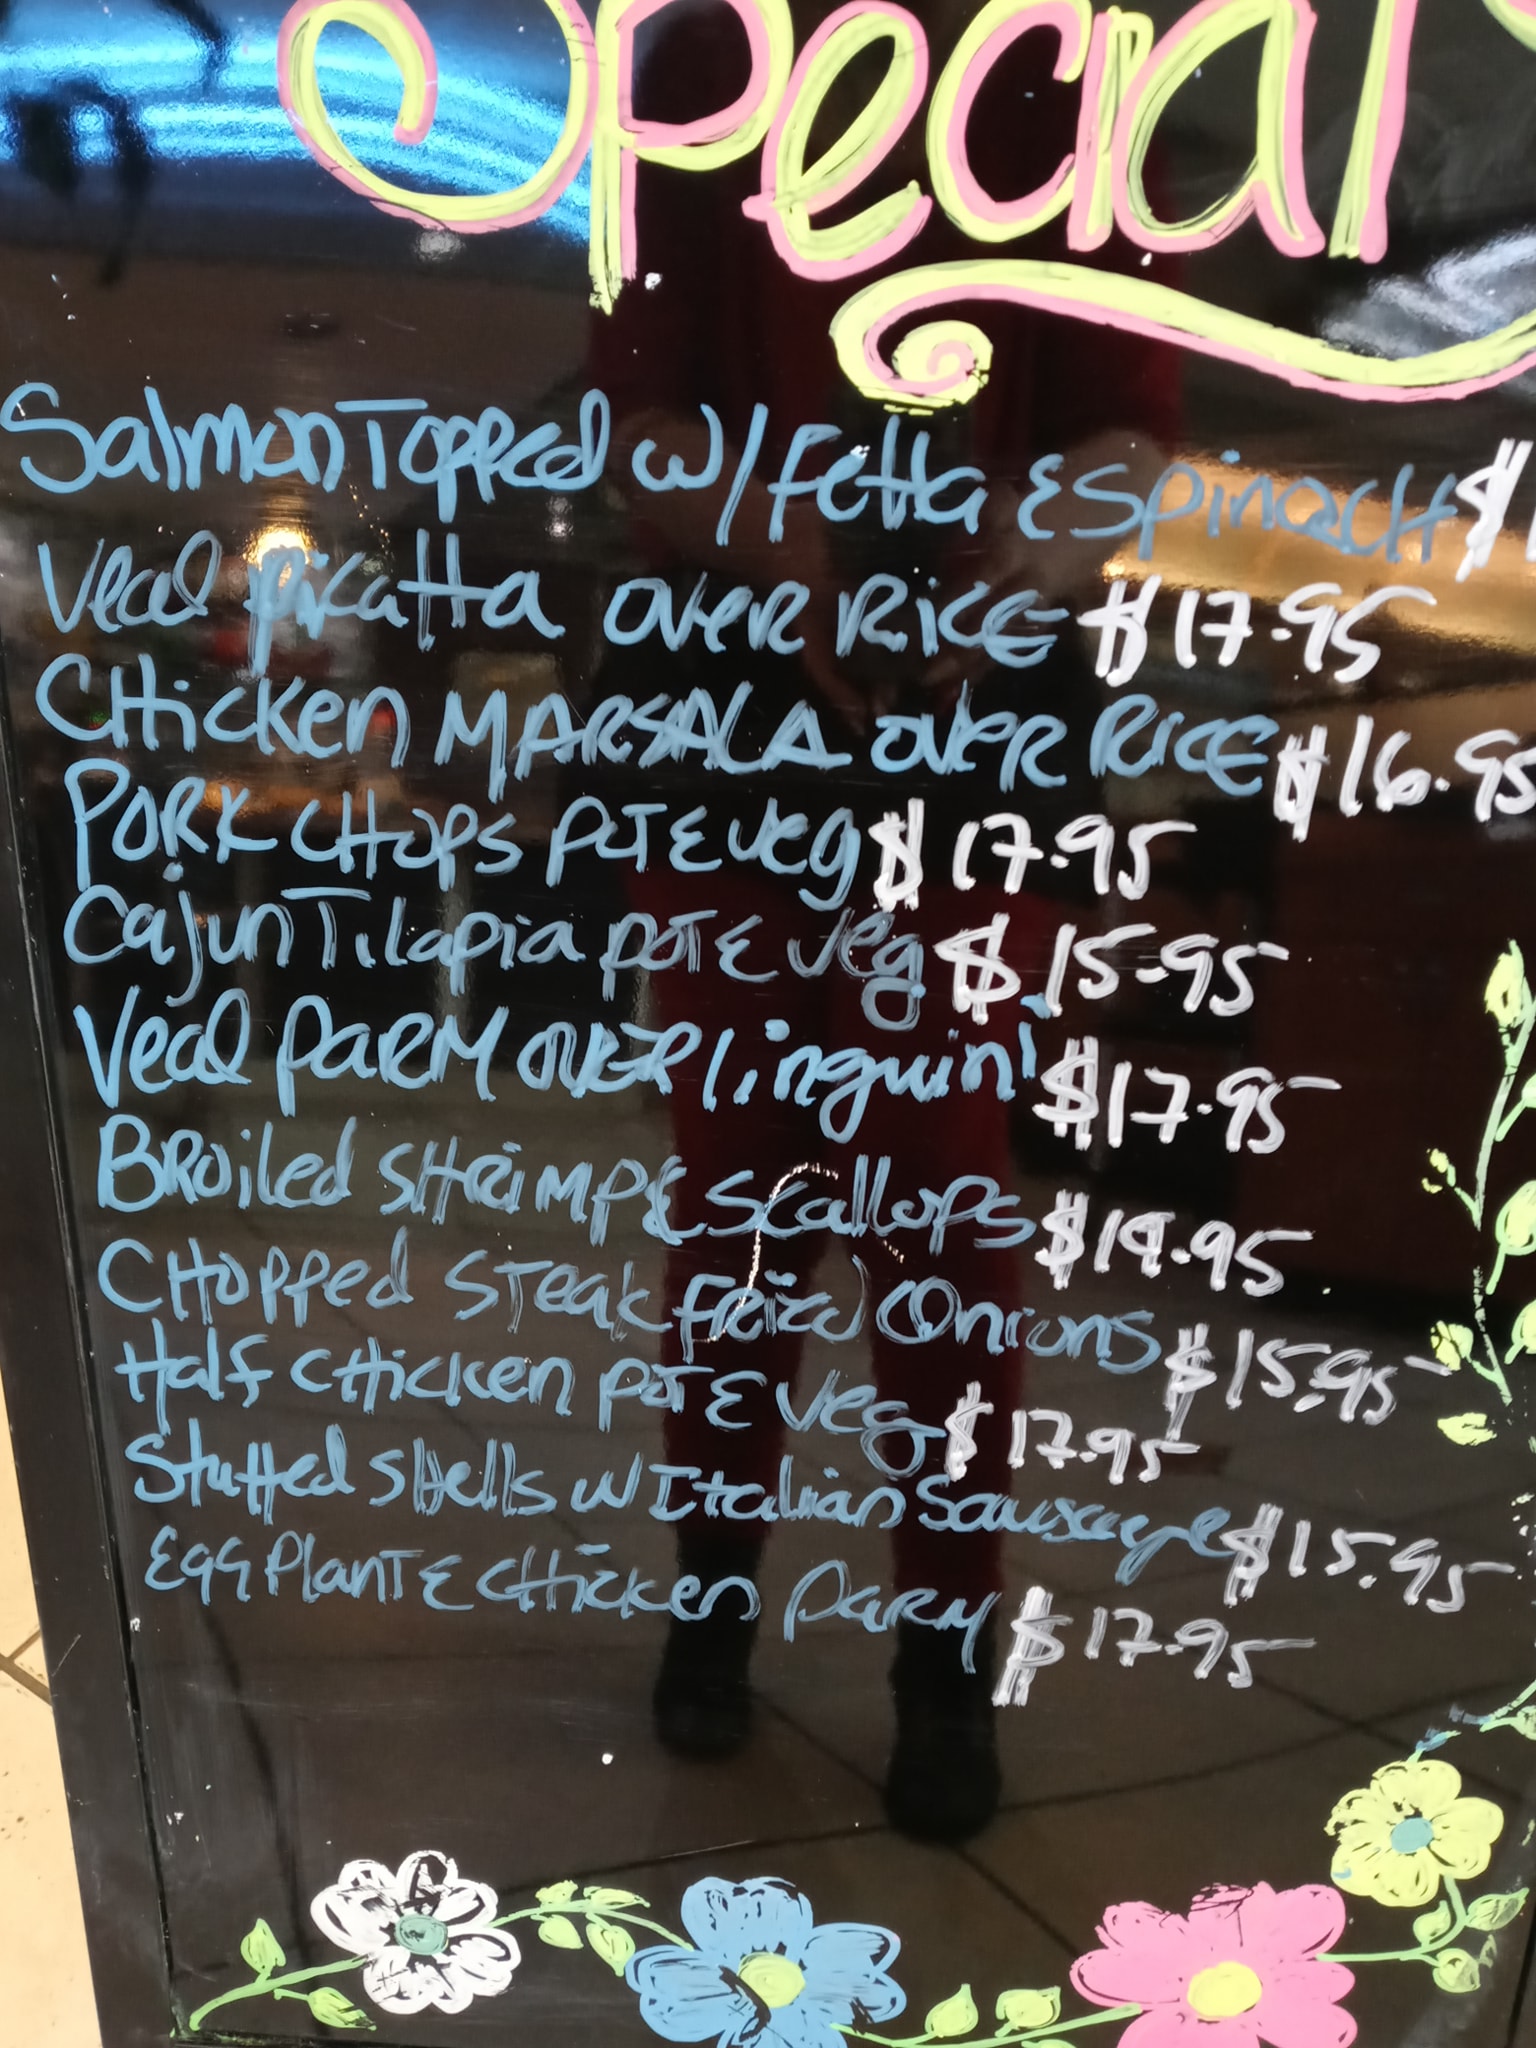 Specials
Salmon Topped w/ Fetta & Spinach $1
Veal Picatta over Rice $17.95
Chicken Marsala over Rice $16.95
Pork Chops Pot & Veg $17.95
Cajun Tilapia Pot & Veg $15.95
Veal Parm over linguini $17.95
Broiled Shrimp & Scallops $19.95
Chopped Steak Fried Onions $15.95
Half Chicken Pot & Veg $17.95
Stuffed Shells w Italian Sausage $15.95
Egg Plant & Chicken Parm $17.95